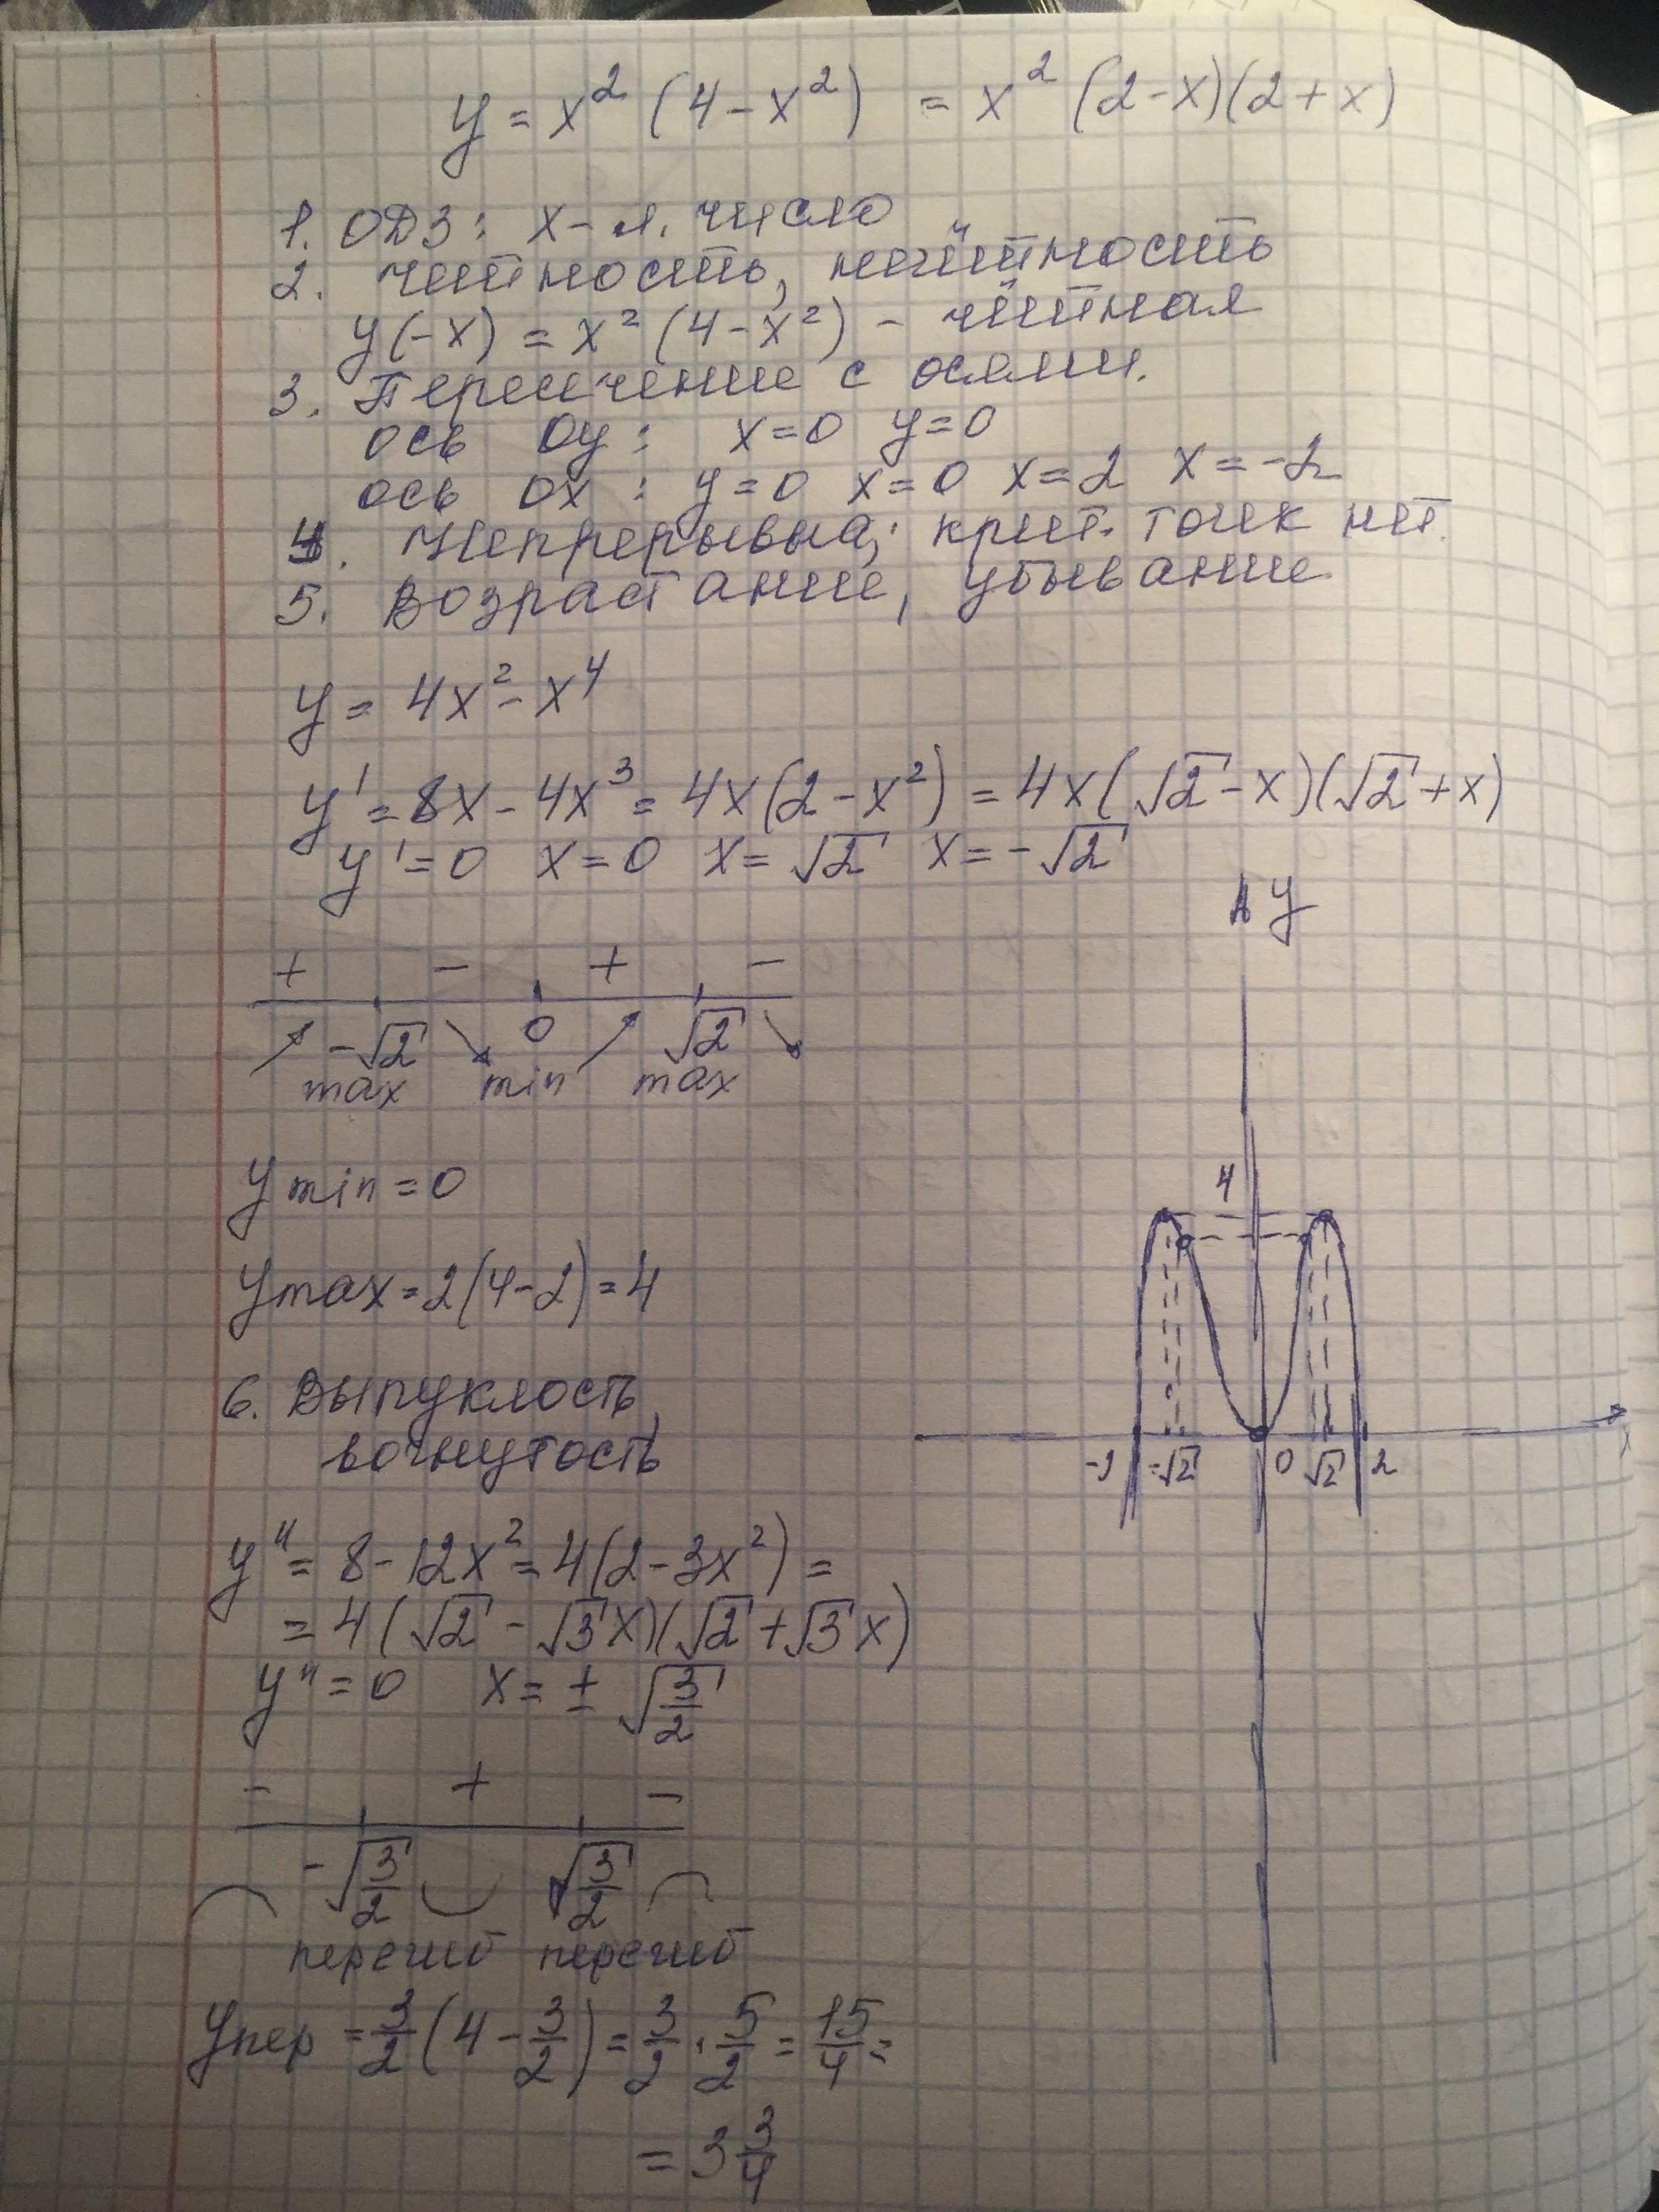 y = x² (4 - x²) = x² (2-x)(2+x)
1. ОДЗ: x - л. число
2. чётность, нечётность
y(-x) = x² (4-x²) - чётная
3. Пересечение с осями.
ось Oy: x=0 y=0
ось Ox: y=0 x=0 x=2 x=-2
4. Непрерывна; крит. точек нет.
5. Возрастание, убывание
y = 4x² - x⁴
y' = 8x - 4x³ = 4x(2-x²) = 4x(√2-x)(√2+x)
y'=0 x=0 x=√2 x=-√2
y
+ - + -
-√2 0 √2
max min max
4
y min = 0
y max = 2(4-2) = 4
6. Выпуклость,
вогнутость
-2 -√2 0 √2 2
x
y'' = 8 - 12x² = 4(2-3x²) =
= 4(√2 - √3x)(√2 + √3x)
y'' = 0 x = ± √(3/2)
- + -
-√(3/2) √(3/2)
перегиб перегиб
y пер = 3/2 (4 - 3/2) = 3/2 · 5/2 = 15/4 =
= 3 3/4